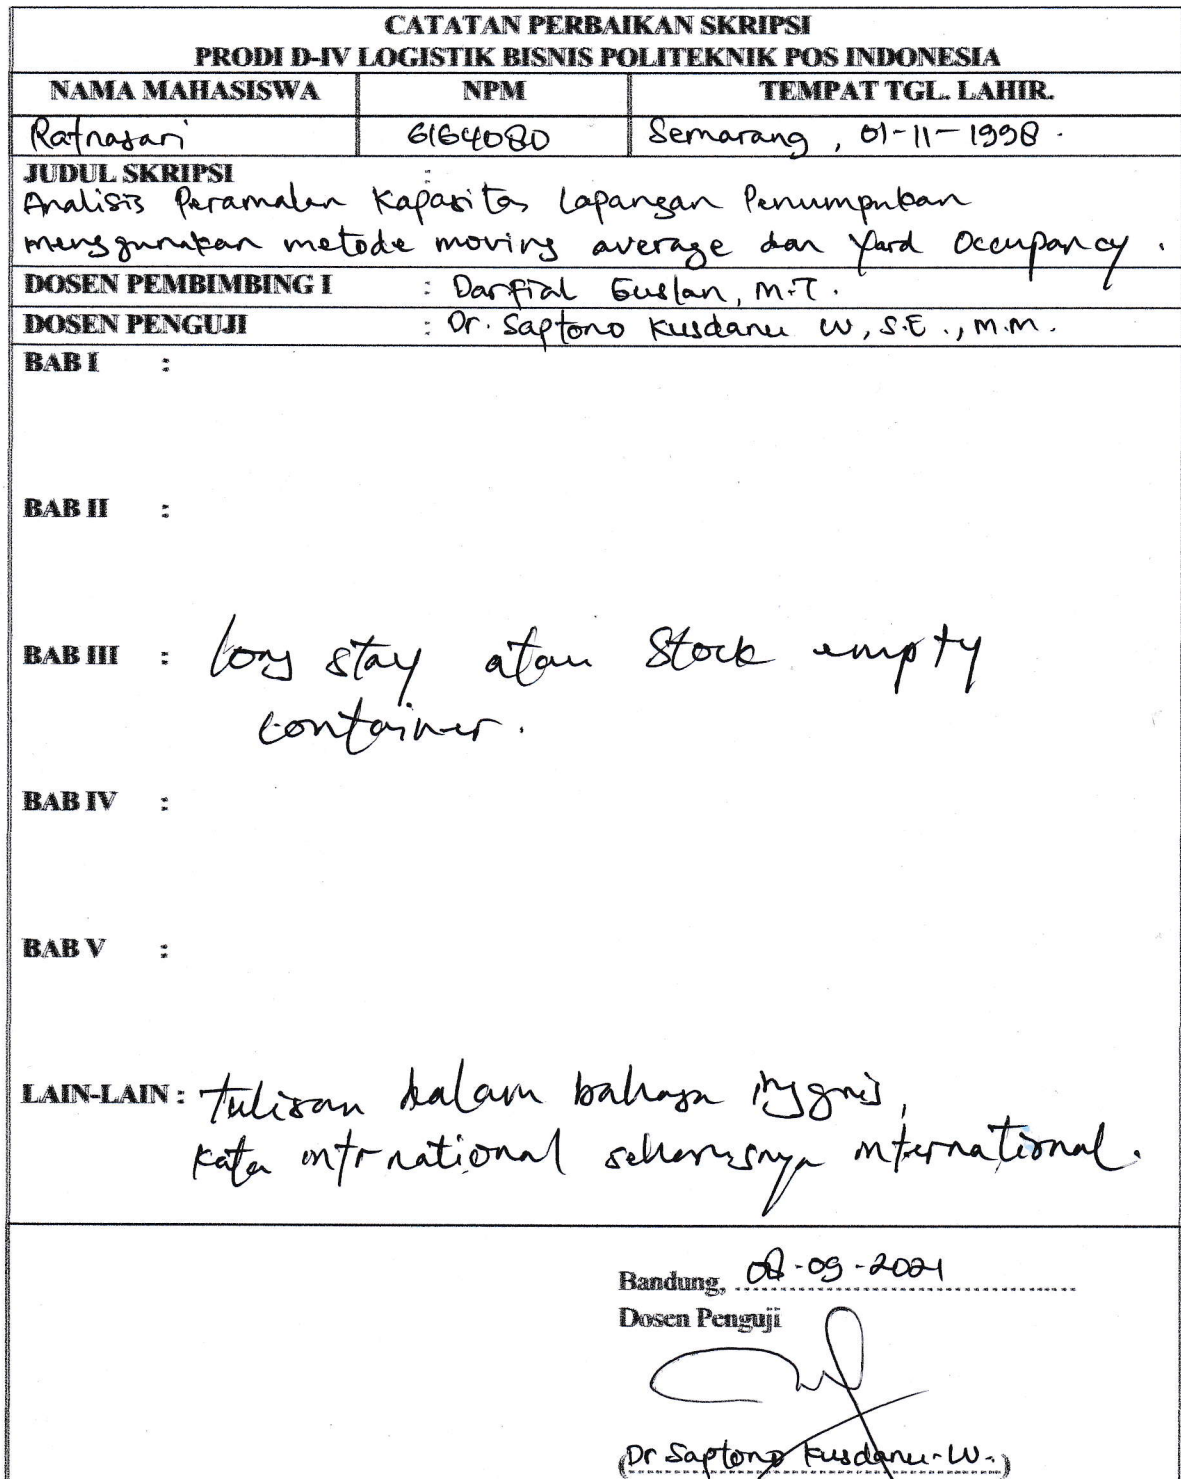 CATATAN PERBAIKAN SKRIPSI
PRODI D-IV LOGISTIK BISNIS POLITEKNIK POS INDONESIA
NAMA MAHASISWA NPM TEMPAT TGL. LAHIR.
Ratnasari 6164080 Semarang, 01-11-1998.
JUDUL SKRIPSI :
Analisis Peramalan Kapasitas Lapangan Penumpukan
menggunakan metode moving average dan Yard Occupancy.
DOSEN PEMBIMBING I : Darfial Guslan, M.T.
DOSEN PENGUJI : Dr. Saptono Kusdanu W, S.E., M.M.
BAB I :
BAB II :
BAB III : Long stay atau Stock empty
container.
BAB IV :
BAB V :
LAIN-LAIN : tulisan dalam bahasa inggris,
kata intrnational seharusnya international.
Bandung, -09-2021
Dosen Penguji
(Dr Saptono Kusdanu-W.)